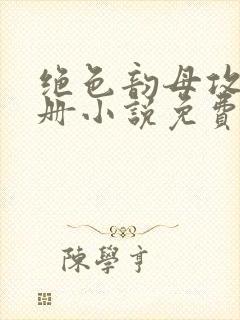 绝色韵母攻
册小說免費
陳學亨